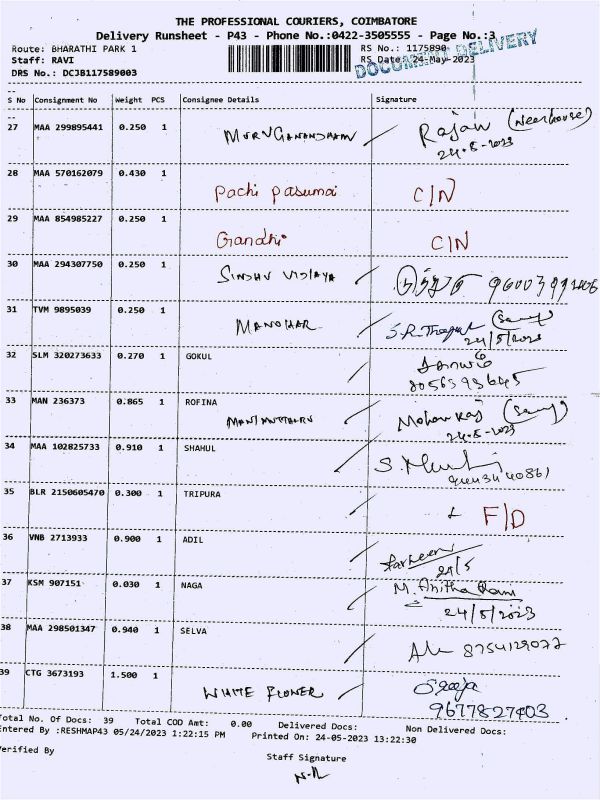 THE PROFESSIONAL COURIERS, COIMBATORE
Delivery Runsheet - P43 - Phone No.:0422-3505555 - Page No.:3
Route: BHARATHI PARK 1 RS No.: 1175890
Staff: RAVI RS Date: 24-May-2023
DOCUMENT DELIVERY
DRS No.: DCJB117589003
S No Consignment No Weight PCS Consignee Details Signature
27 MAA 299895441 0.250 1 MURUGANANDHAM Rajan (Neerhouse)
24-5-2023
28 MAA 570162079 0.430 1
Pachi pasumai C/N
29 MAA 854985227 0.250 1
Gandhi C/N
30 MAA 294307750 0.250 1 SINDHU VIJAYA
31 TVM 9895039 0.250 1 MANOHAR
24/5/2023
32 SLM 320273633 0.270 1 GOKUL
33 MAN 236373 0.865 1 ROFINA
Mohan Raj
24-5-2023
34 MAA 102825733 0.910 1 SHAHUL
35 BLR 2150605470 0.300 1 TRIPURA
F/D
36 VNB 2713933 0.900 1 ADIL
Parheen
24/5
37 KSM 907151 0.030 1 NAGA M. Anitha Rani
24/5/2023
38 MAA 298501347 0.940 1 SELVA
8754129077
39 CTG 3673193 1.500 1
WHITE FLOWER
9677827403
Total No. Of Docs: 39 Total COD Amt: 0.00 Delivered Docs: Non Delivered Docs:
Entered By :RESHMAP43 05/24/2023 1:22:15 PM Printed On: 24-05-2023 13:22:30
Verified By
Staff Signature